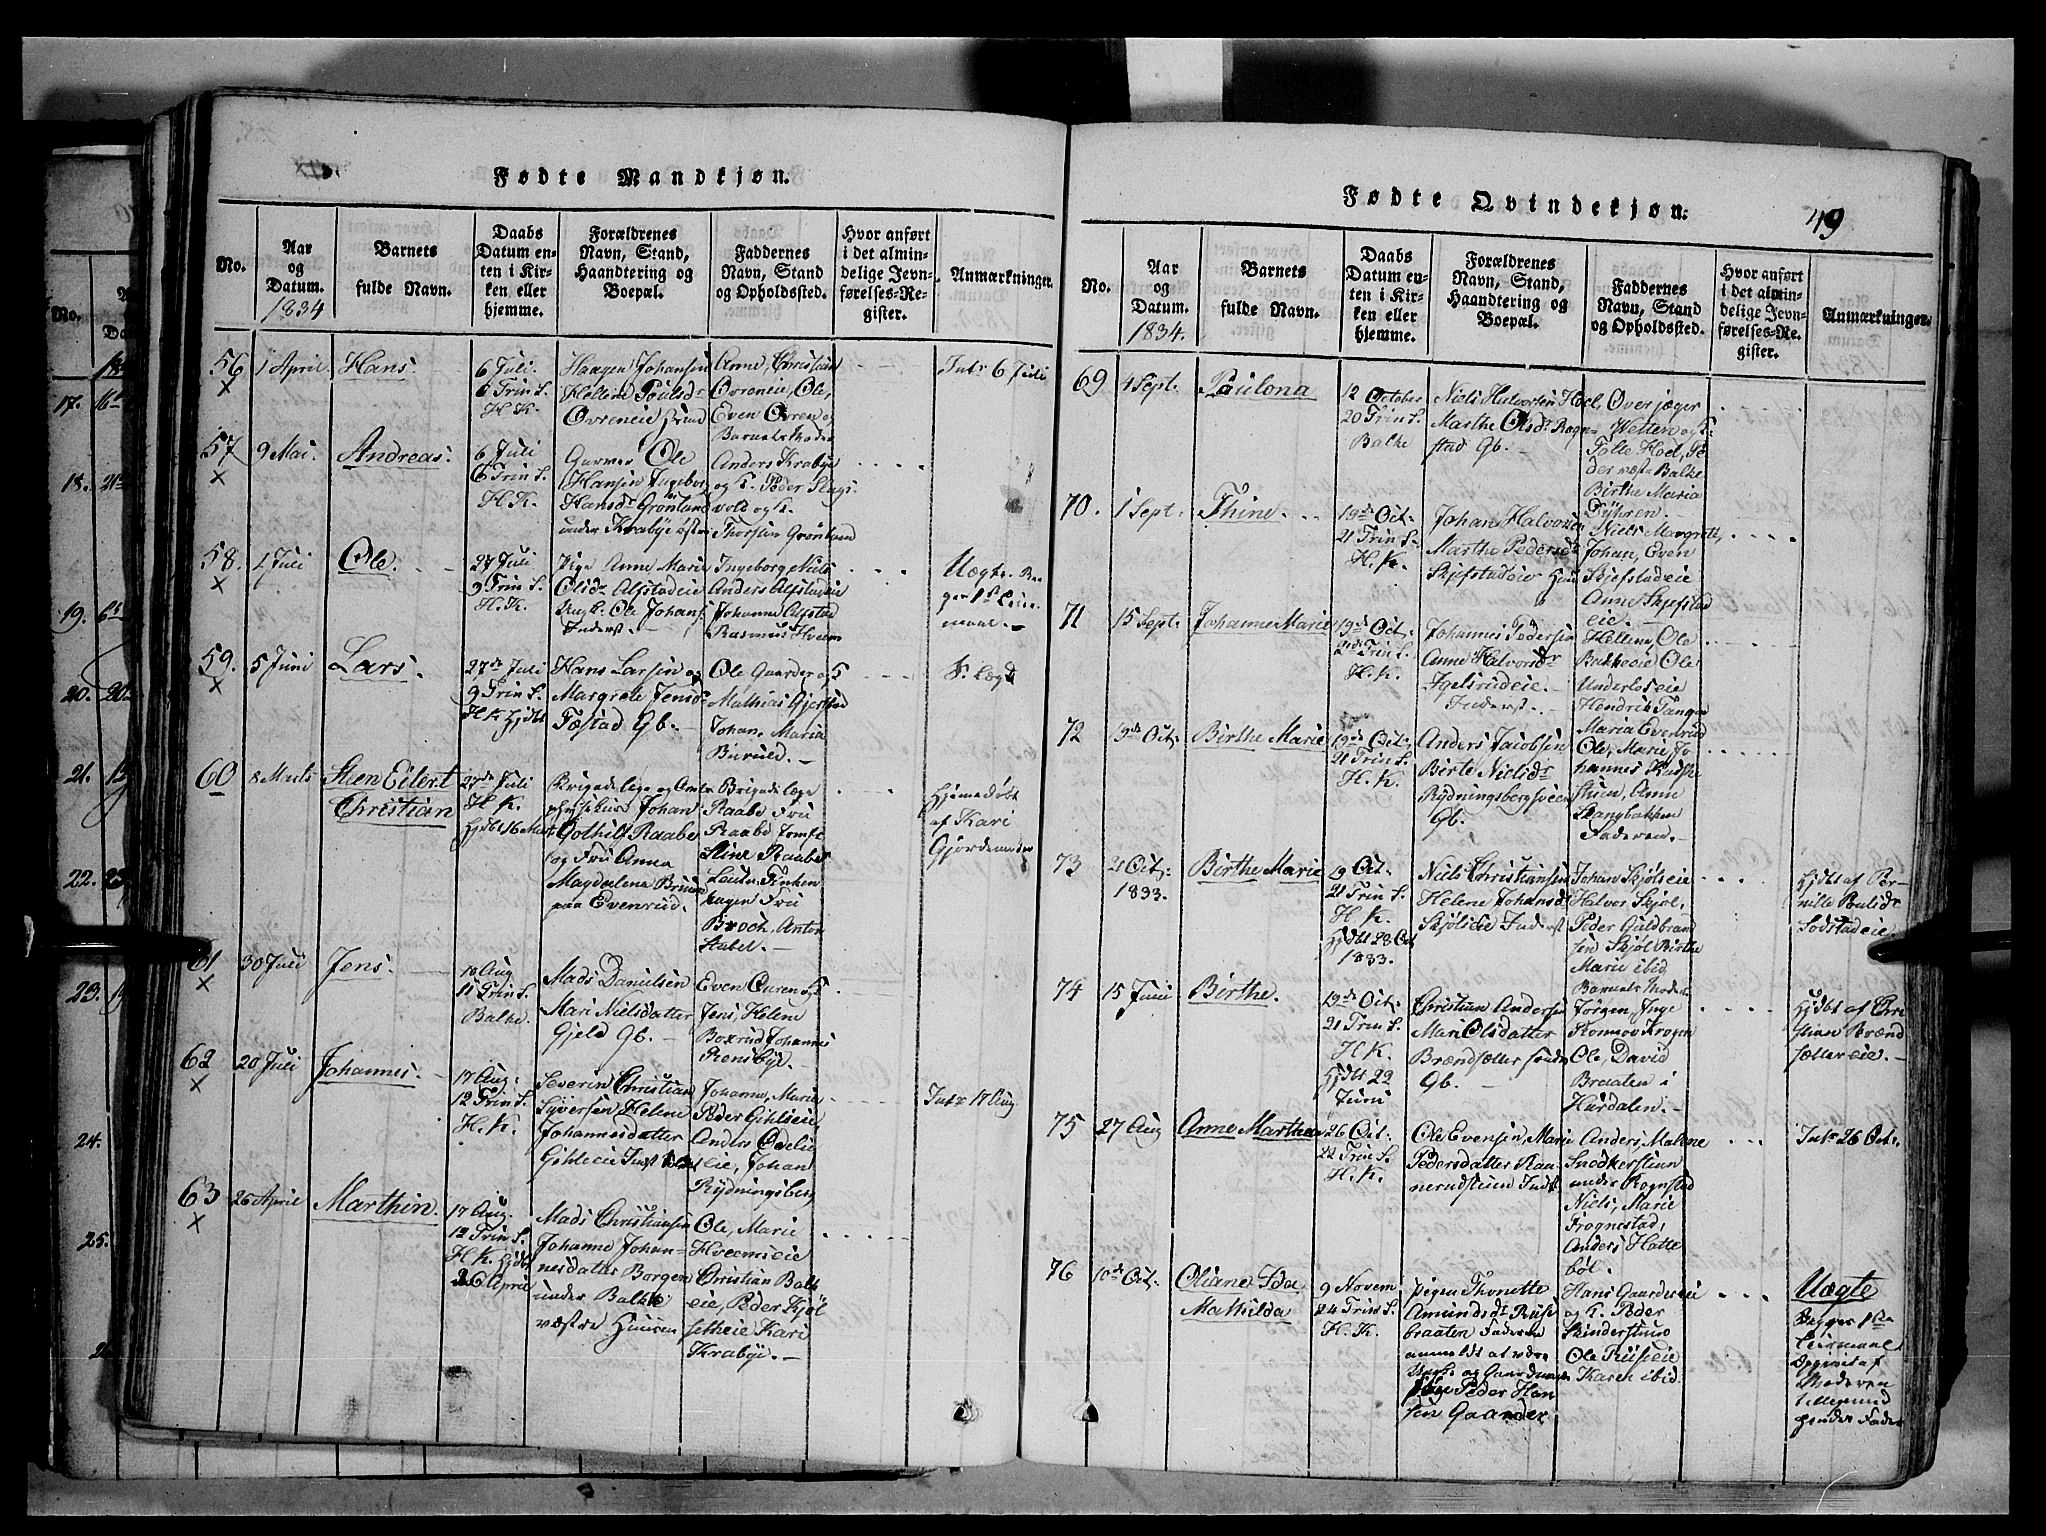 Fødte Mandkjøn.
No.
Aar
og
Datum.
1834
Barnets
fulde Navn.
Daabs
Datum en-
ten i Kir-
ken eller
hjemme.
Forældrenes
Navn, Stand,
Haandtering og
Boepæl.
Faddernes
Navn, Stand
og Opholdssted.
Hvor anført
i det almin-
delige Jevn-
førelses-Re-
gister.
Anmærkninger.
56
1 April.
Hans.
6 Juli
6 Trin S.
H. K.
Haagen Johansen
Hellene Poulsdr
Øvreneie
Anne, Christian
Øvreneie, Ole,
Even Øvren og
Barnets Moder
Intr 6 Juli
57
9 Mai.
Andreas.
6 Juli
6 Trin S.
H. K.
Garver Ole
Hansen Ingeborg
Hansdr Grønland
under Krabye østre
Anders Krabye
og K. Peder Slags
vold og K.
Thorsten Grønland
58.
1 Juli
Ole.
27 Juli
9 Trin S.
H. K.
Pige Anne Marie
Olsdr Alfstadeie
Ungk. Ole Johans.
Inderst.
Ingeborg Niels
Anders Alfstadeie
Johanne Alfstad
Rasmus Hveem
Uægte. Be
59.
5 Juni
Lars.
27de Juli
9 Trin S.
H K Hjdbt
Hans Larsen og
Margrete Jensdr
Tøstad Gb.
Ole Gaarder og K
Mathias Gjerstad
Johan, Maria
Buruld.
60
8 Marts
Steen Eilert
Christian
27de Juli
H. K.
Hjdbt 16 Mart
Brigadelæge og Amts
physikus Johan
Gothilf Raabe
og Fru Anna
Magdalena Bruun
paa Evenrud.
Brigadelæge
Raabe Fru
Raabe Jomf.
Stine Raabe
Leutn. Finken
hagen Fru
Broch, Anton
Stabel.
Hjemmedøbt
af Kari
61
30 Juli
Jens.
10 Aug
11 Trin S.
Balke
Mads Danielsen
Mari Nielsdatter
Gjeld Gb.
Even Øvren og K
Jens, Helene
Boxrud, Johannes
Rensbye.
62
20 Juli
Johannes.
17 Aug:
12 Trin S.
H. K.
Severin Christian
Syversen Helene
Johannesdatter
Gihleeie Indst
Johanne, Marie
Peder Gihleeie,
Anders
eie, Johan
Rydningsberg
Intr 17 Aug
63
26 April
Marthin.
17 Aug.
12 Trin S.
H. K. Hjdbt
26 April
Mads Christiansen
Johanne Johan-
nesdatter Borgen
under Balke
væstre Huusm
Ole, Marie
Hveemseie
Christian Balk
eie, Peder Skjøl
sethleie Kari
Krabye.
Fødte Qvindekjøn.
49
No.
Aar
og
Datum.
1834.
Barnets
fulde Navn.
Daabs
Datum en-
ten i Kir-
ken eller
hjemme.
Forældrenes
Navn, Stand,
Haandtering og
Boepæl.
Faddernes
Navn, Stand
og Opholdssted.
Hvor anført
i det almin-
delige Jevn-
førelses-Re-
gister.
Anmærkninger.
69
4 Sept.
Paulona
12 October
20 Trin S.
Balke
Niels Halvorsen Hoel,
Marthe Olsdr Rogn-
stad Gb.
Overjæger
Wetten og K:
Tolle Hoel, Pe
der væst. Balke
Birthe Maria
Fyhren.
70.
1 Sept.
Thine.
19de Oct.
21 Trin S.
H. K.
Johan Halvorsen
Marthe Pedersdr
Skjefstadeie Huus
Niels Margrete,
Johan, Even
Skjefstadeie
Anne Skjefstad
eie.
71
15 Sept.
Johanne Marie
19de Oct.
21de Trin S.
H. K.
Johannes Pedersen
Anne Halvorsdr
Igelsrudeie.
Inderst.
Hellene, Ole
Bakkeeie Ole
Underloseie
Hendrik Tangen
Maria Evenrud
72
19de Oct.
Birthe Marie
19de Oct.
21 Trin S.
H. K.
Anders Jacobsen
Birte Nielsdr
Rydningsbergseie
Gb.
Ole, Marie, Jo
hannes
stuen, Anne
Langbakken
Faderen.
73
21 Oct.
1833.
Birthe Marie
19 Oct.
21 Trin S.
H. K.
Hjdbt 28 Oct
1833.
Niels Christiansen
Helene Johansdr
Skjølseie Inderst
Johan Skjølseie
Halvor Skjøl,
Peder Guldbrand
sen Skjøl Birthe
Marie ibid
Barnets Moder
Hjdbt af Per-
nille Poulsdr
Sodstadeie.
74
15 Juni
Birthe.
19de Oct.
21 Trin S.
H K.
Hjdbt 22
Juni
Christian Andersen
Mari Olsdatter
Brændsætter
Gb.
Jørgen, Inge
Ole, David
Braaten i
Hurdalen.
Hjdbt af Chri
stian Brænd
sættereie.
75
27 Aug
Anne Marthea
26 Oct.
22 Trin S.
H. K.
Ole Evensen, Marie
Pedersdatter Raa-
nerudstuen Indst
Anders, Malene
Snedkerstuen
under Rognstad
Niels, Marie
Frognestad,
Anders Hatte
bøl.
Intr 26 Oct.
76
10de Oct.
Oliane Ida
Mathilda
9 Novem
24 Trin S.
H. K.
Pigen Thonette
Amundsdr Ruse
braaten Faderen
anmeldt at være
Ungk. og Gaardmands
søn Peder Han
sen Gaarder
Hans Gaarderseie
og K. Peder
Skinderstuen
Ole Ruseeie
Karen ibid.
Uægte
Begges 1ste
Leiermaal
Opgivet af
Moderen